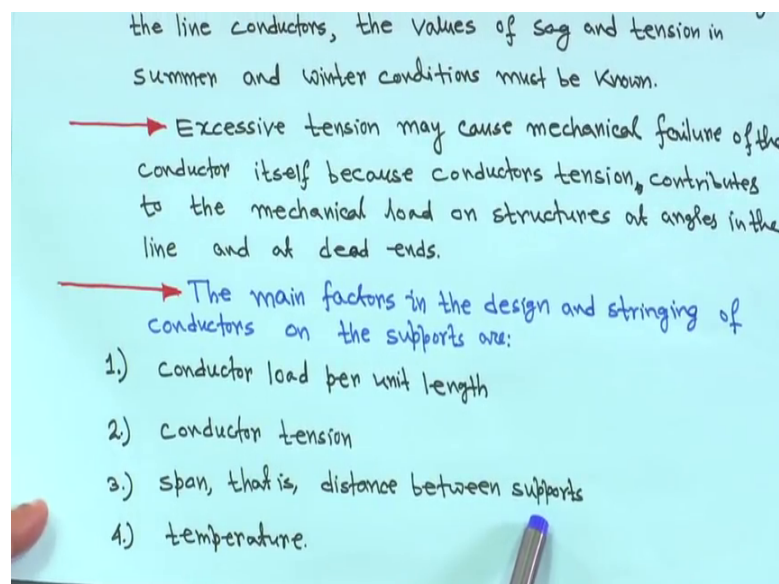 the line conductors, the values of sag and tension in
summer and winter conditions must be known.
Excessive tension may cause mechanical failure of the
conductor itself because conductors tension, contributes
to the mechanical load on structures at angles in the
line and at dead ends.
The main factors in the design and stringing of
conductors on the supports are:
1.) conductor load per unit length
2.) conductor tension
3.) span, that is, distance between supports
4.) temperature.